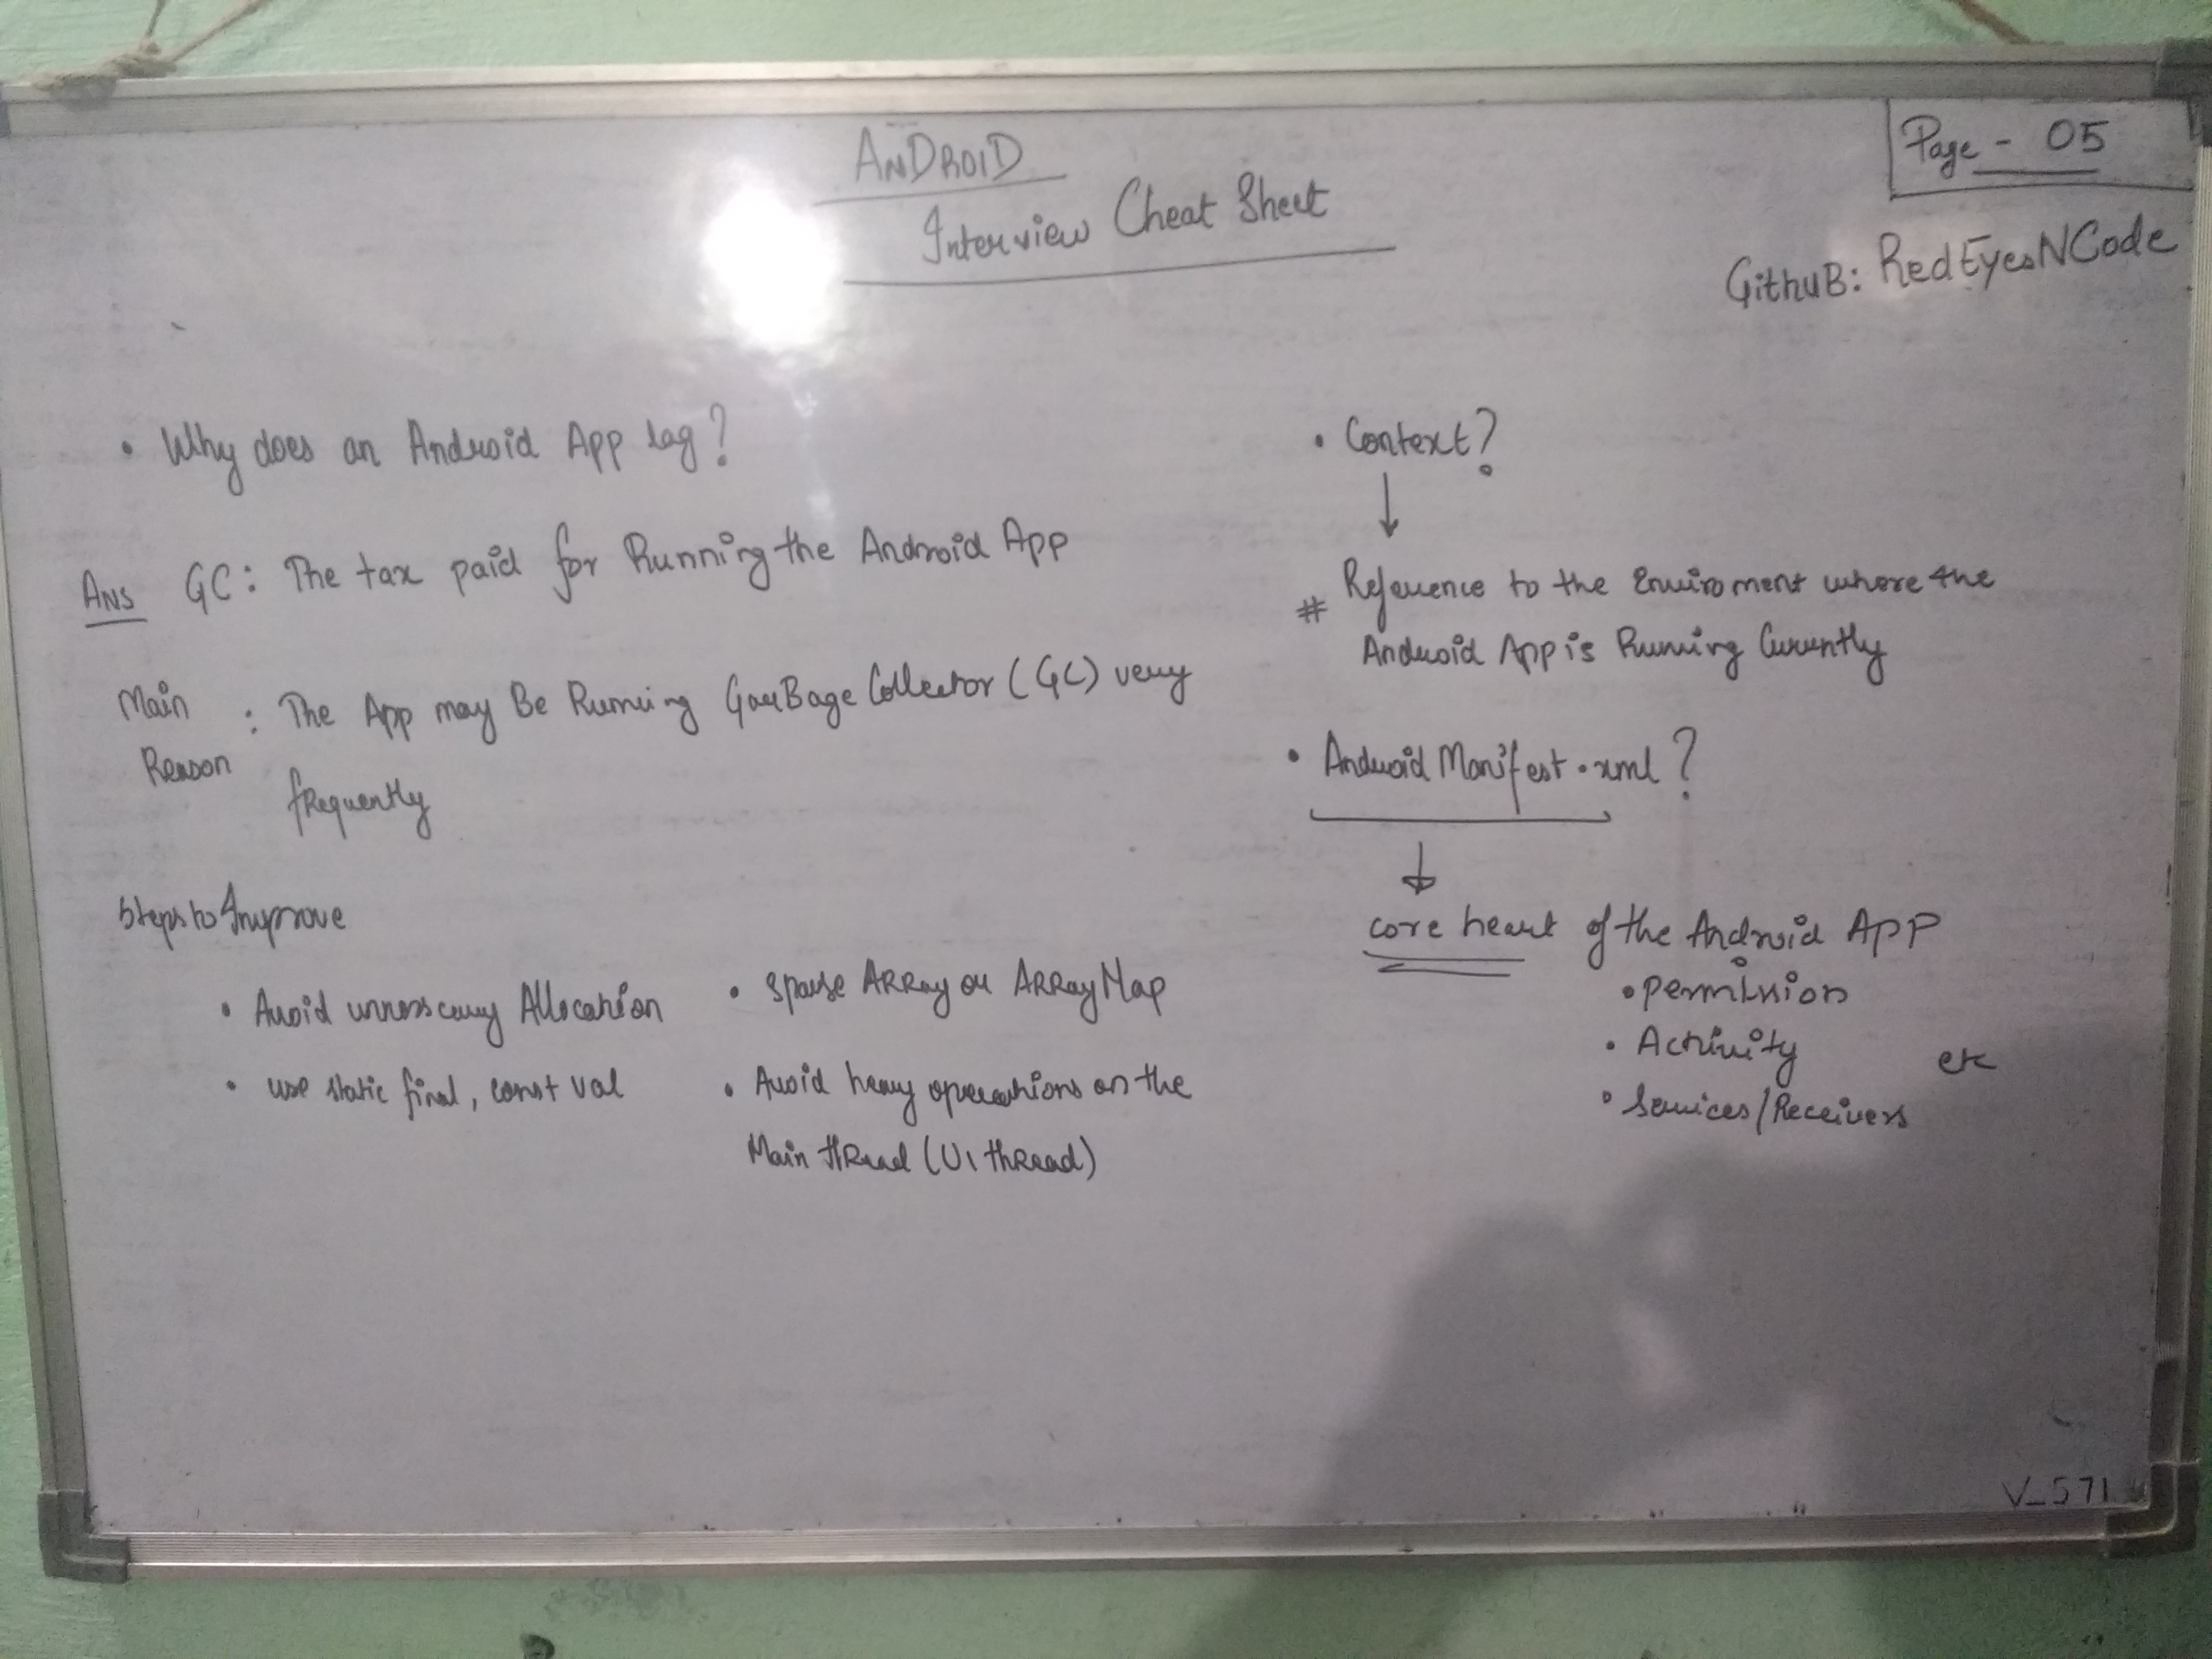 ANDROID
Interview Cheat Sheet
Page - 05
GithuB: RedEyesNCode
• Why does an Android App lag?
Ans GC: The tax paid for Running the Android App
Main Reason : The App may Be Running GarBage Collector (GC) very
frequently
Steps to Improve
• Avoid unnesscarry Allocation
• use static final, const val
• Sparse ARRay or ARRayMap
• Avoid heavy operations on the
Main thRead (UI thRead)
• Context?
↓
# Reference to the Enviroment where the
Android App is Running Currently
• Android Manifest.xml?
↓
core heart of the Android App
• permission
• Activity etc
• Services/Receivers
V_571